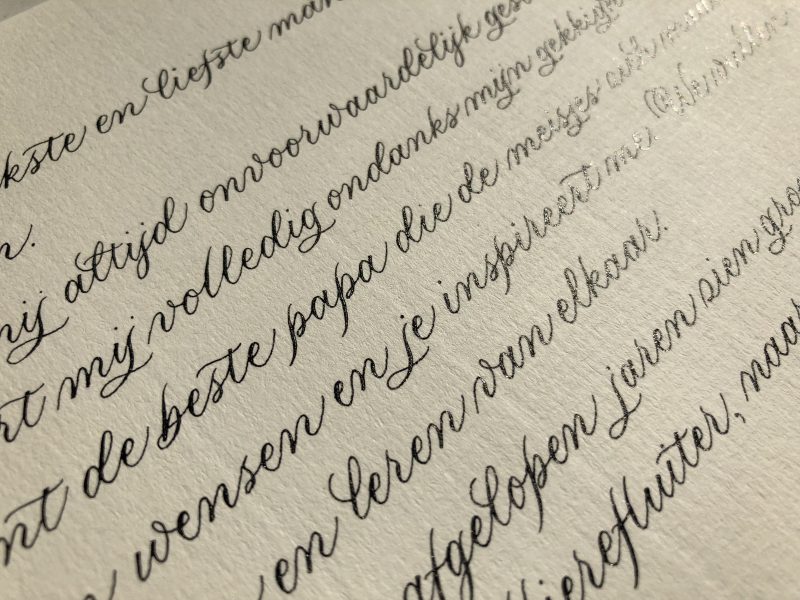 kste en liefste man
n.
mij altijd onvoorwaardelijk ges
rt mij volledig ondanks mijn gekkig
nt de beste papa die de meisjes
n wensen en je inspireert me.
en leren van elkaar.
afgelopen jaren zien gro
fluiter, naar